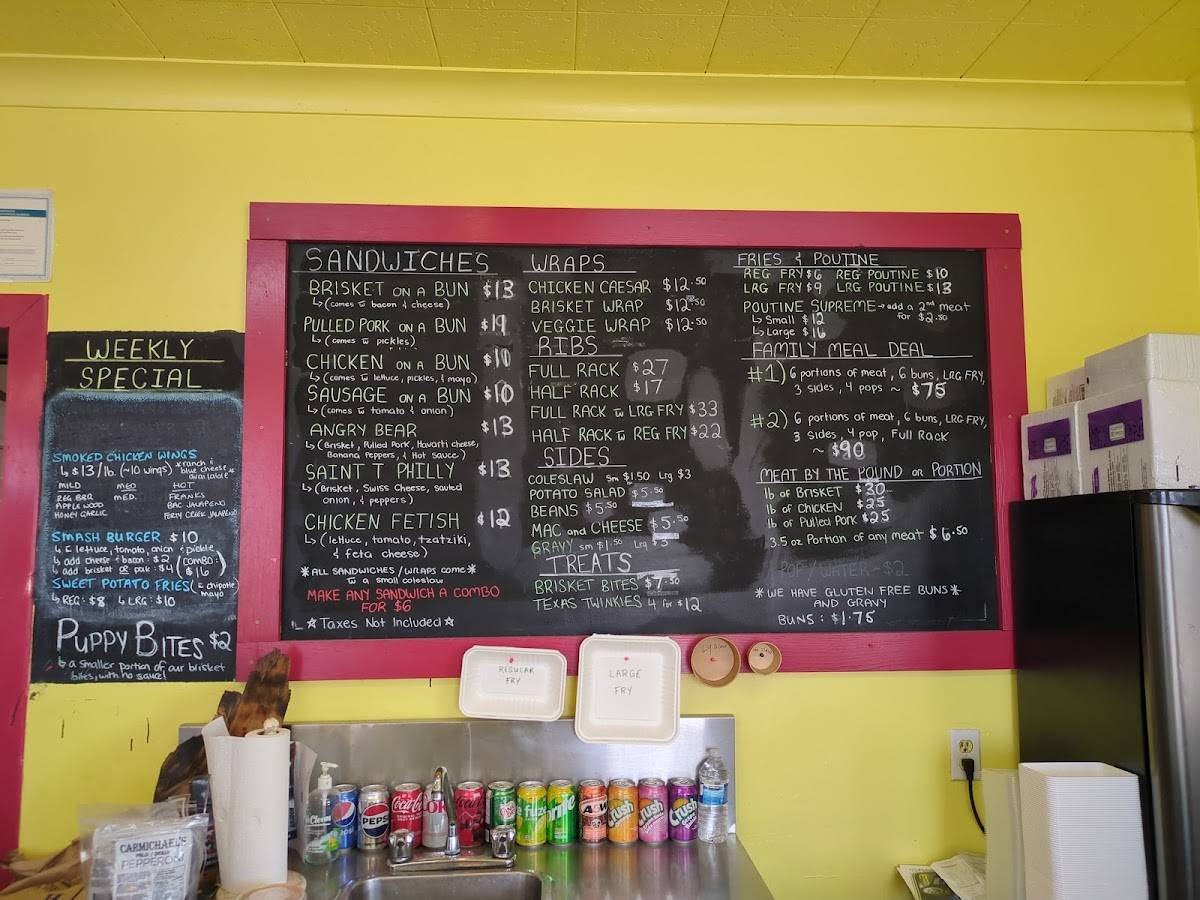 WEEKLY
SPECIAL
SMOKED CHICKEN WINGS
↳ $13/lb. (~10 wings) *ranch & blue cheese available*
MILD MED HOT
REG BBQ MED. FRANKS
APPLEWOOD BAC JALAPEÑO
HONEY GARLIC
SMASH BURGER $10
↳ c lettuce, tomato, onion & pickle
↳ add cheese & bacon: $2
↳ add brisket or pork: $4
(COMBO: $16)
SWEET POTATO FRIES (c chipotle mayo)
↳ REG: $8 ↳ LRG: $10
PUPPY BITES $2
↳ a smaller portion of our brisket
bites, with no sauce!
SANDWICHES
BRISKET ON A BUN $13
↳ (comes w bacon & cheese)
PULLED PORK ON A BUN
↳ (comes w pickles)
CHICKEN ON A BUN $10
↳ (comes w lettuce, pickles, & mayo)
SAUSAGE ON A BUN $10
↳ (comes w tomato & onion)
ANGRY BEAR $13
↳ (Brisket, Pulled Pork, Havarti cheese,
Banana Peppers, & Hot Sauce)
SAINT T PHILLY $13
↳ (Brisket, Swiss Cheese, sauted
onion, & peppers)
CHICKEN FETISH $12
↳ (lettuce, tomato, tzatziki,
& feta cheese)
*ALL SANDWICHES/WRAPS come*
w a small coleslaw
MAKE ANY SANDWICH A COMBO
FOR $6
☆ Taxes Not Included ☆
WRAPS
CHICKEN CAESAR $12.50
BRISKET WRAP $12.50
VEGGIE WRAP $12.50
RIBS
FULL RACK $27
HALF RACK $17
FULL RACK w LRG FRY $33
HALF RACK w REG FRY $22
SIDES
COLESLAW Sm $1.50 Lrg $3
POTATO SALAD $5.50
BEANS $5.50
MAC and CHEESE $5.50
GRAVY sm $1.50 Lrg $3
TREATS
BRISKET BITES $7.50
TEXAS TWINKIES 4 for $12
FRIES & POUTINE
REG FRY $6 REG POUTINE $10
LRG FRY $9 LRG POUTINE $13
POUTINE SUPREME → add a 2nd meat
for $2.50
↳ Small $12
↳ Large $16
FAMILY MEAL DEAL
#1) 6 portions of meat, 6 buns, LRG FRY,
3 sides, 4 pops ~ $75
#2) 6 portions of meat, 6 buns, LRG FRY,
3 sides, 4 pop, Full Rack
~ $90
MEAT BY THE POUND or PORTION
lb of BRISKET $30
lb of CHICKEN $25
lb of Pulled Pork $25
3.5 oz Portion of any meat $6.50
POP/WATER - $2
*WE HAVE GLUTEN FREE BUNS*
AND GRAVY
BUNS: $1.75
REGULAR
FRY
LARGE
FRY
Clean
PEPSI
Coca-Cola
fuze
A&W
Crush
Crush
Crush
CARMICHAEL'S
PEPPERONI